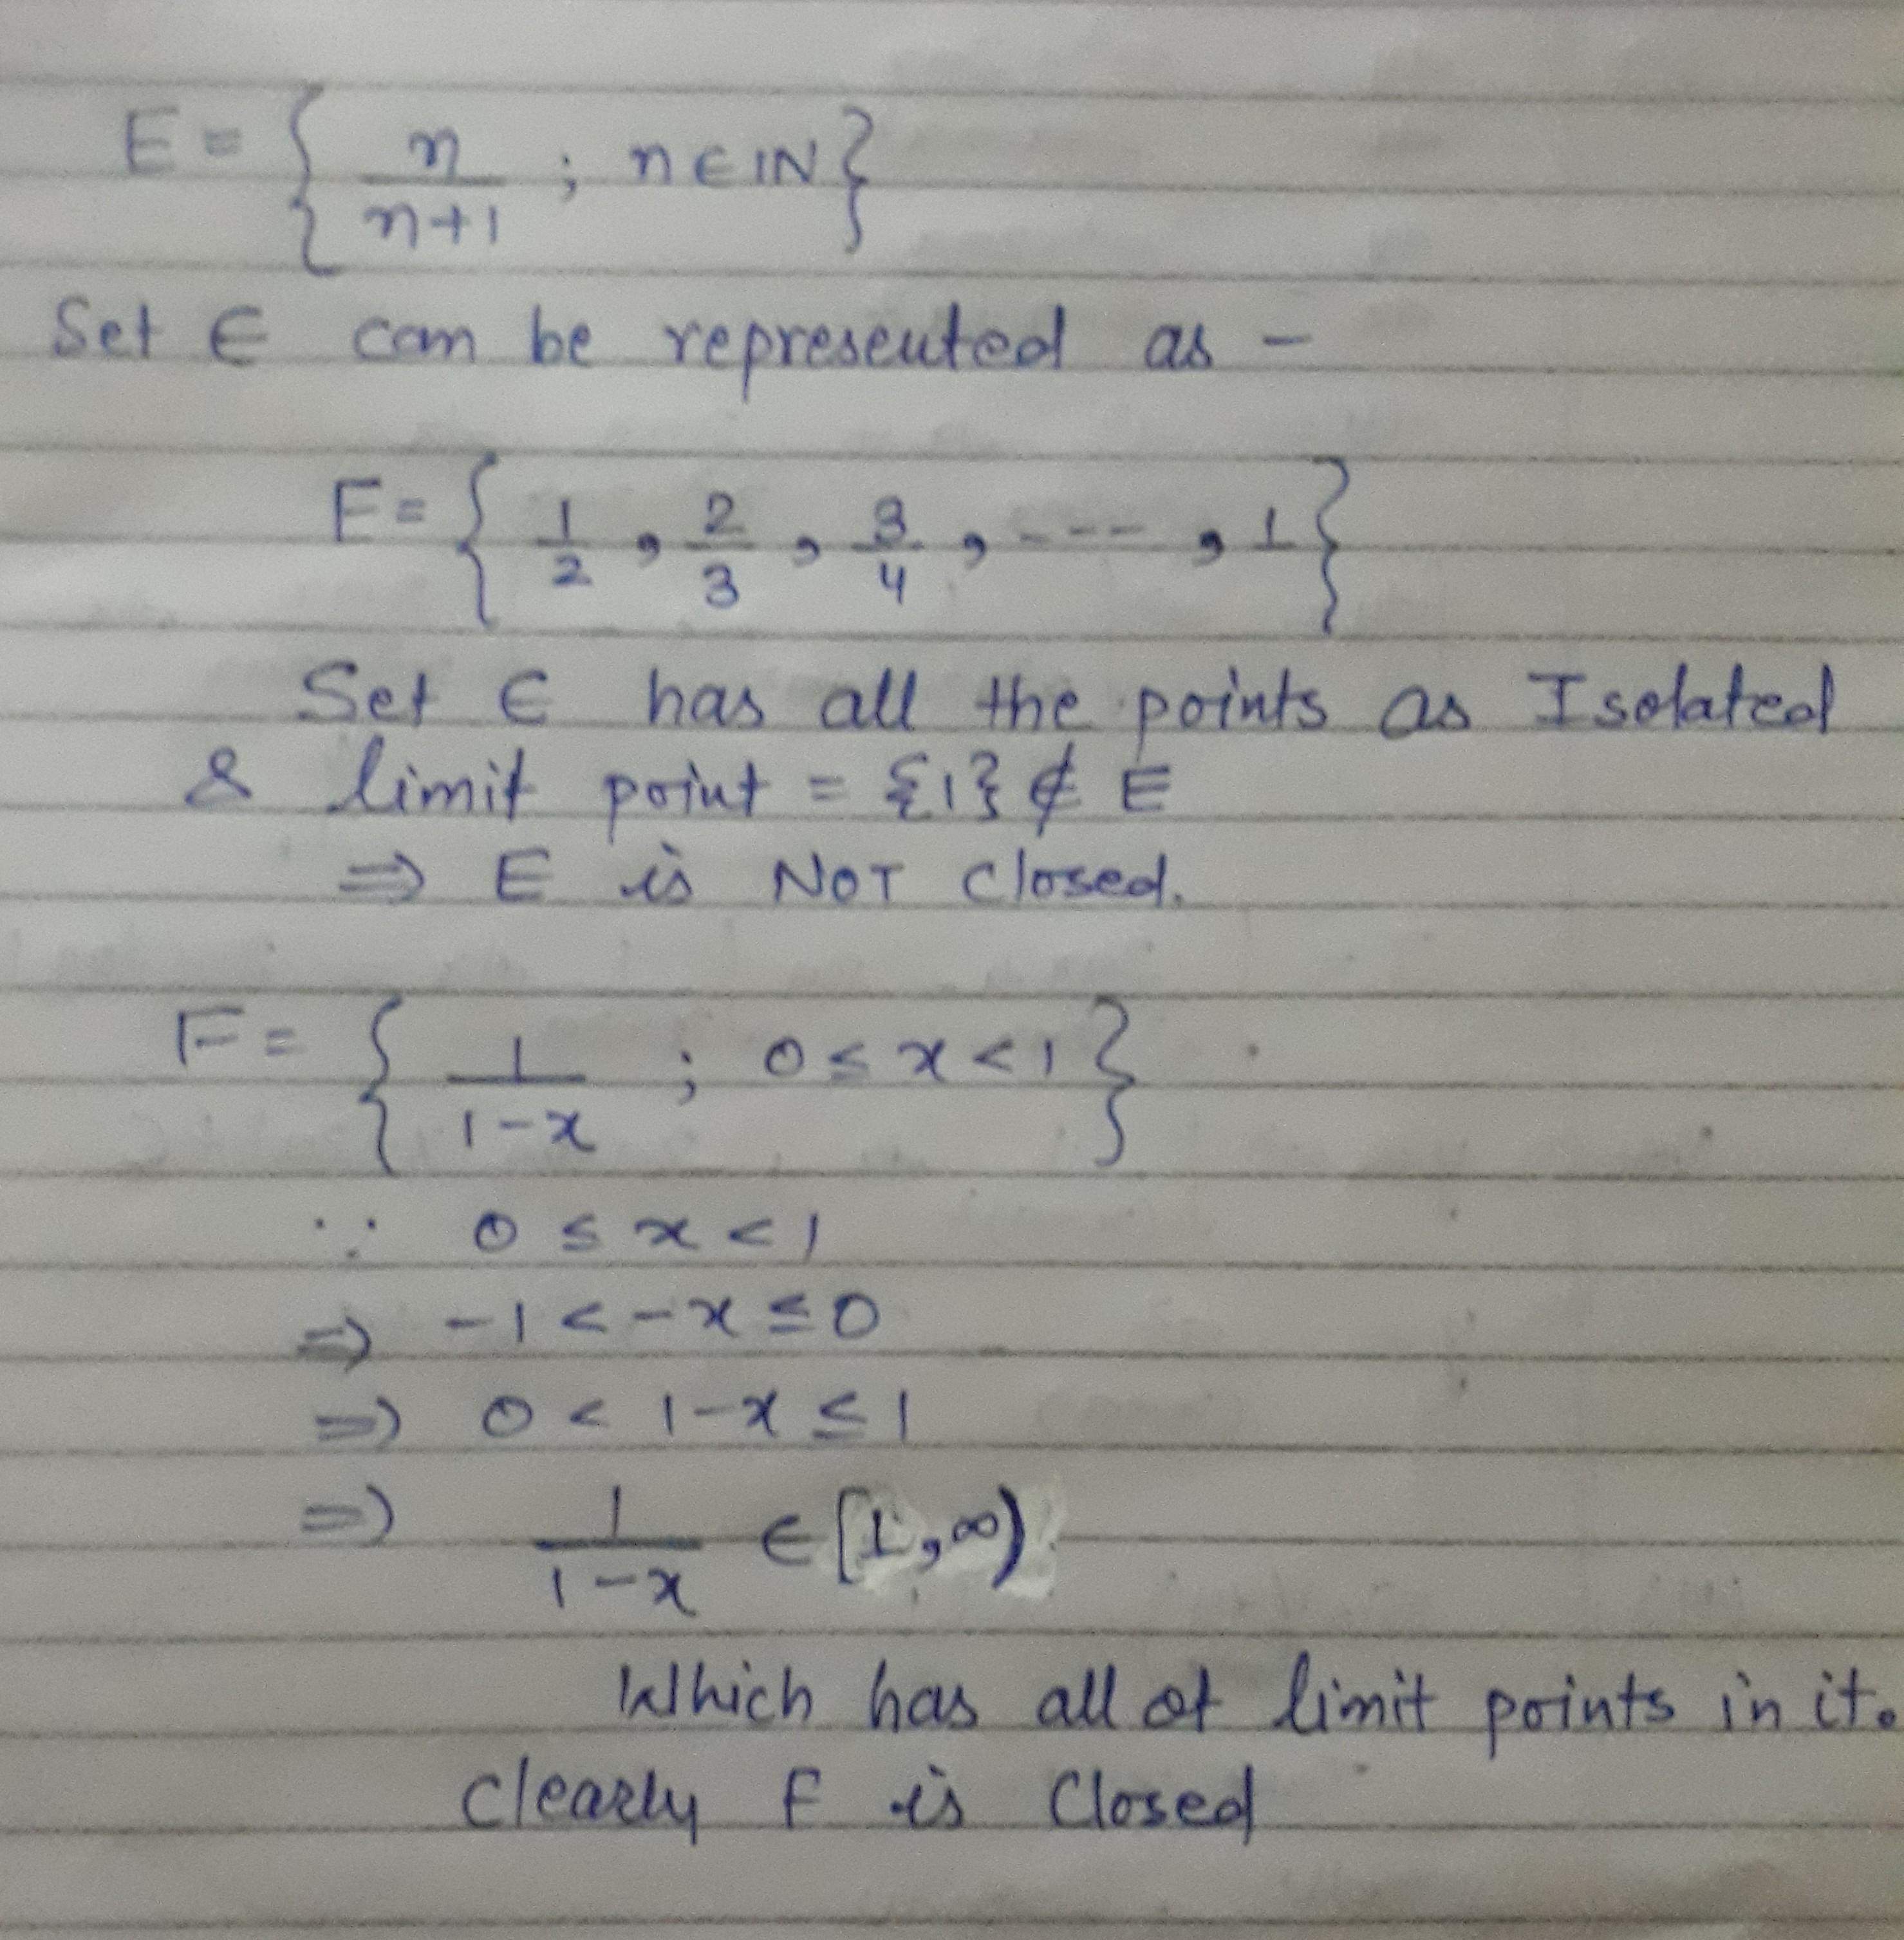 E = { n/n+1 ; n ∈ IN }
Set E can be represented as -
E = { 1/2 , 2/3 , 3/4 , ---- , 1 }
Set E has all the points as Isolated
& limit point = {1} ∉ E
⇒ E is NOT Closed.
F = { 1/1-x ; 0 ≤ x < 1 }
∵ 0 ≤ x < 1
⇒ -1 < -x ≤ 0
⇒ 0 < 1-x ≤ 1
⇒ 1/1-x ∈ [1,∞)
Which has all of limit points in it.
Clearly F is Closed